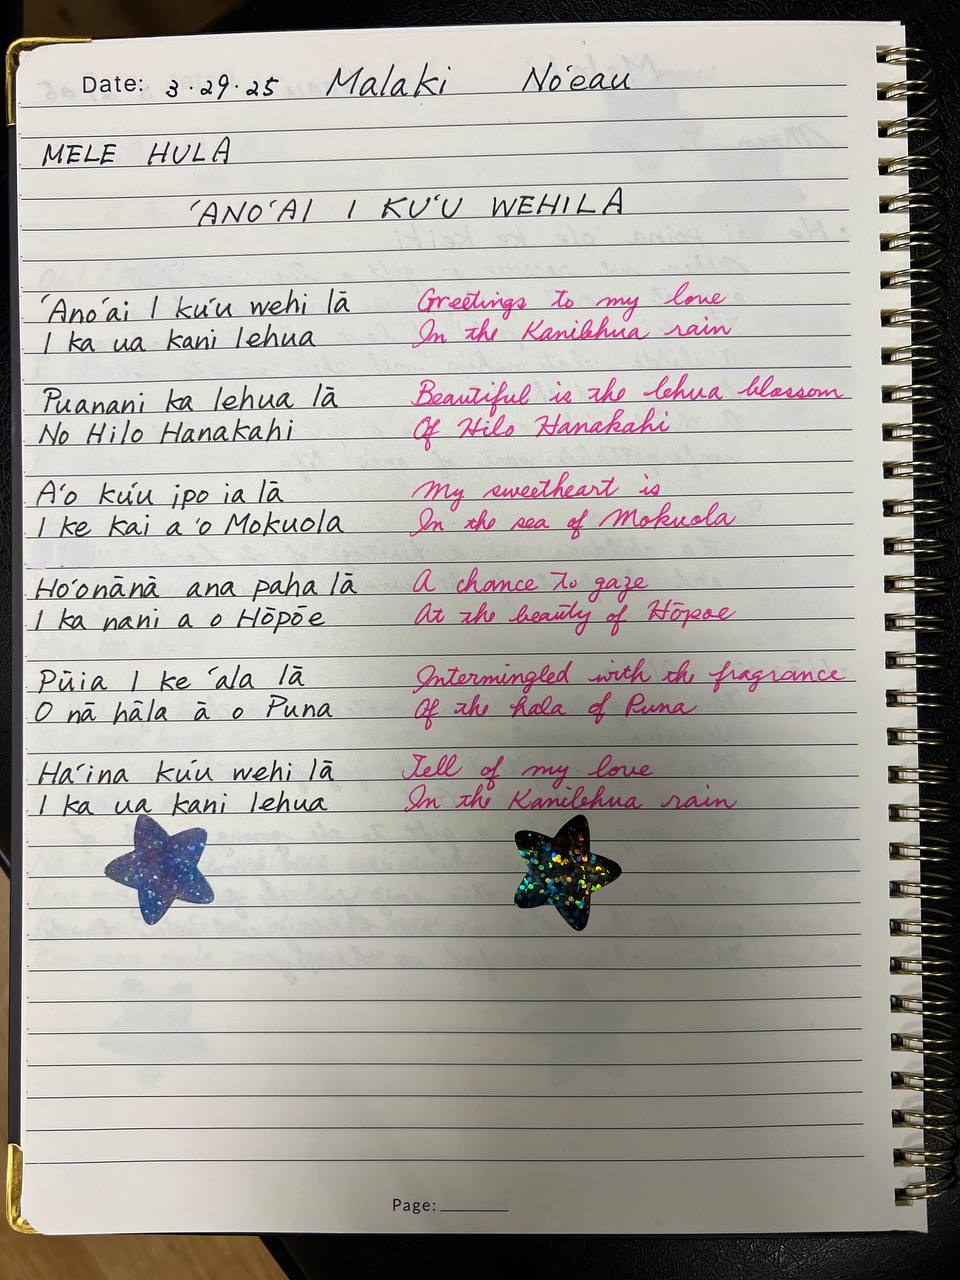 Date: 3.29.25 Malaki No'eau
MELE HULA
'ANO'AI I KU'U WEHILA
'Ano'ai I ku'u wehi lā Greetings to my love
I ka ua kani lehua In the Kanilehua rain
Puanani ka lehua lā Beautiful is the lehua blossom
No Hilo Hanakahi Of Hilo Hanakahi
A'o ku'u ipo ia lā My sweetheart is
I ke kai a 'o Mokuola In the sea of Mokuola
Ho'onānā ana paha lā A chance to gaze
I ka nani a o Hōpōe At the beauty of Hōpoe
Pūia I ke 'ala lā Intermingled with the fragrance
O nā hāla ā o Puna Of the hala of Puna
Ha'ina ku'u wehi lā Tell of my love
I ka ua kani lehua In the Kanilehua rain
Page: